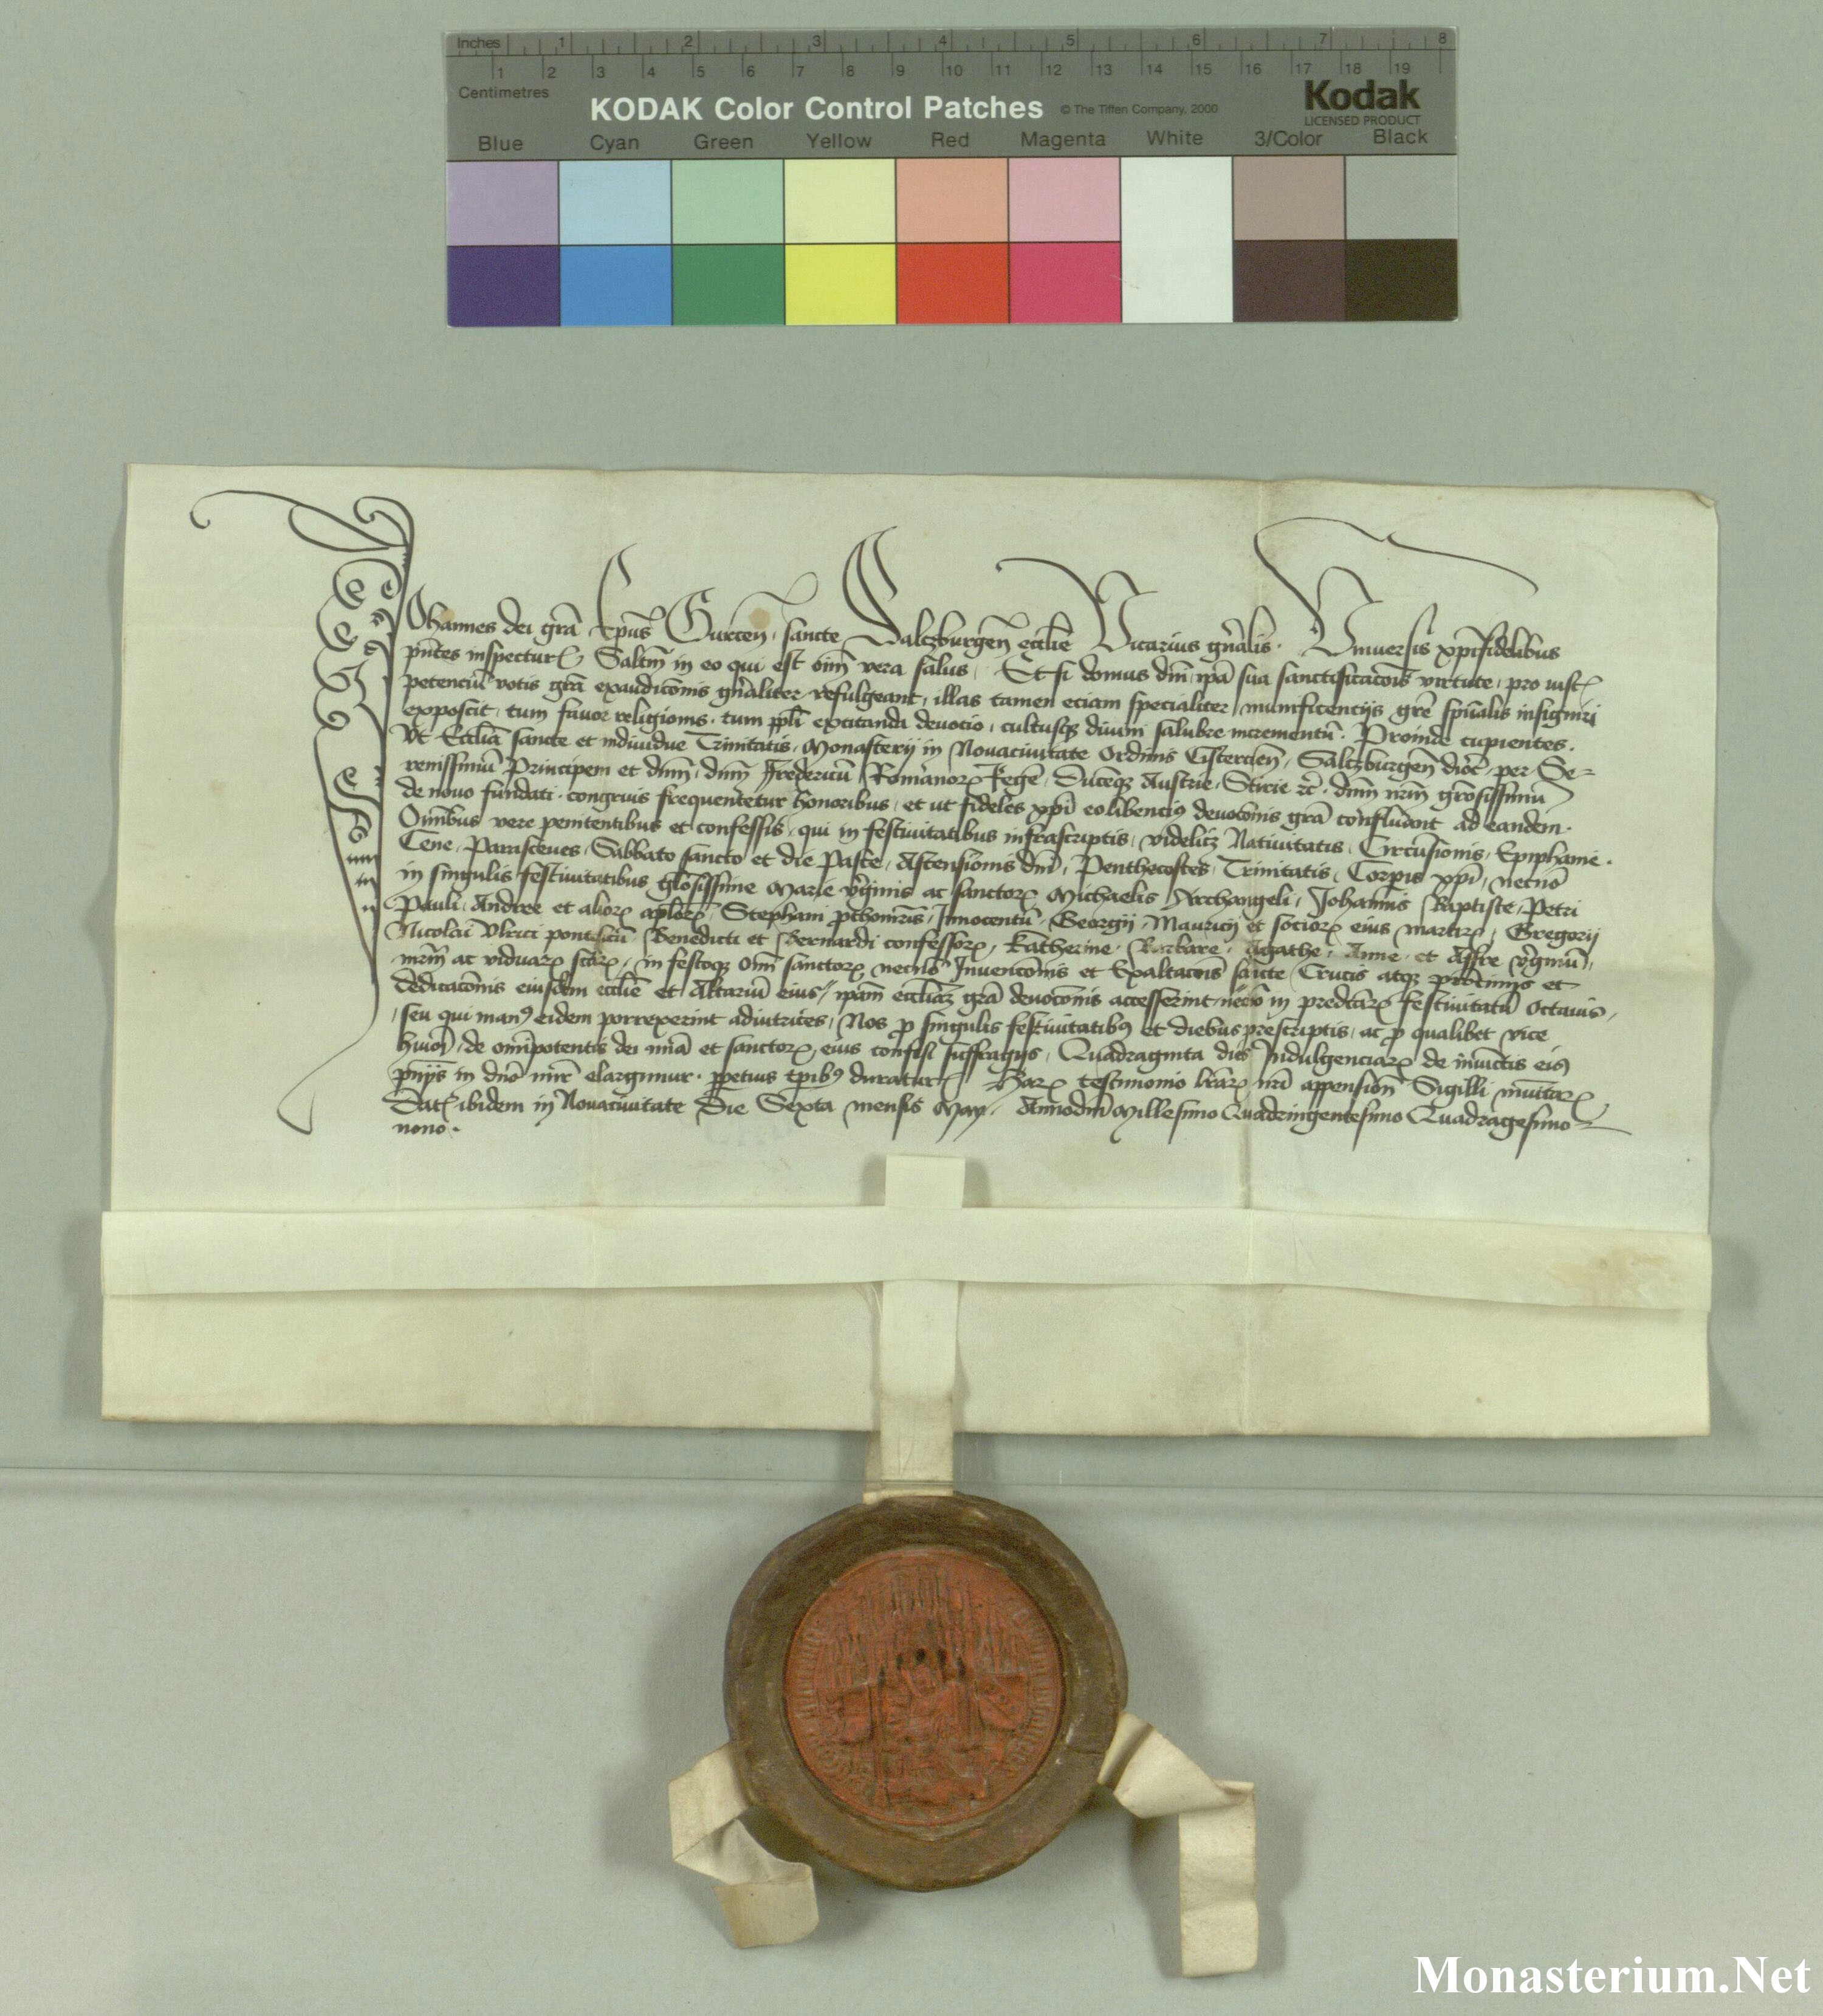 Inches 1 2 3 4 5 6 7 8
1 2 3 4 5 6 7 8 9 10 11 12 13 14 15 16 17 18 19
Centimetres
KODAK Color Control Patches © The Tiffen Company, 2000 Kodak
LICENSED PRODUCT
Blue Cyan Green Yellow Red Magenta White 3/Color Black
Johannes dei grã Ep̃us Gurceñ, sancte Saltzburgeñ eccl̃ie Vicarius gñalis. Vniuersis xp̃ifidelibus
pñtes inspectur̃ Saltm̃ in eo qui est oĩm vera salus, Et si domus dñi ip̃a sua sanctificacõis virtute, pro iust̃
petenciũ votis grã exaudicõnis gñaliter refulgeant, illas tamen eciam specialiter munificencijs grẽ sp̃ualis insigniri
exposcit, tum fauor religionis, tum pp̃li excitanda deuocio, cultusqʒ diuini salubre incrementũ. Proinde cupientes.
Vt Eccl̃ia sancte et indiuidue Trinitatis, Monasterij in Nouaciuitate Ordinis Cistercieñ, Saltzburgeñ dioc̃, per Se-
renissimũ Principem et dñm, dñm Fredericũ Romanoꝝ Regẽ, Ducẽqʒ Austrie, Stirie ꝛc̃. dñm nr̃m gr̃osissimũ
de nouo fundati, congruis frequentetur honoribus, et ut fideles xp̃i eo libenciꝰ deuocõnis grã confluant ad eandem.
Om̃ibus vere penitentibus et confessis, qui in festiuitatibus infrascriptis, videlicʒ Natiuitatis, Circũsionis, Epiphanie.
Cene, Parasceues, Sabbato sancto et die Pasce, Ascensionis dñi, Penthecostes, Trinitatis, Corp̃is xp̃i, necnõ
in singulis festiuitatibus gl̃osissime Marie v̑ginis ac sanctoꝝ Michaelis Archangeli, Johannis Baptiste, Petri
Pauli, Andree et alioꝝ ap̃loꝝ, Stephani p̃thomr̃is, Innocentũ, Georgij, Mauricij et socioꝝ eius martirꝝ, Gregorij
Nicolai Vlrici pontificũ Benedicti et Bernardi confessoꝝ, Katherine, Barbare, Agathe, Anne, et Affre v̑ginũ,
mr̃m ac viduaꝝ sc̃aꝝ, in festoqʒ oĩm sanctoꝝ necnõ Inuencõnis et Exaltacõis sancte Crucis atqʒ
dedicacõnis eiusdem eccl̃ie et Altariũ eius, ip̃am eccl̃iaʒ grã deuocõnis accesserint necnõ in predc̃aꝝ festiuitatũ Octauis,
seu qui manꝰ eidem porrexerint adiutrices, Nos p̱ singulis festiuitatibꝰ et diebus prescriptis, ac p̱ qualibet vice
hmõi, de om̃ipotentis dei mĩa et sanctoꝝ eius confisi suffragijs, Quadraginta dies Indulgenciaꝝ de iniunctis eis
p̃nijs in dño mĩr elargimur. ꝑpetuis tp̃ibꝰ duratur̃ Haꝝ testimonio lr̃aꝝ nr̃i appensioñ Sigilli munitaꝝ
Dat̃ ibidem in Nouaciuitate Die Sexta mensis May. Anno dñi Millesimo Quadringentesimo Quadragesimo
nono.
Monasterium.Net